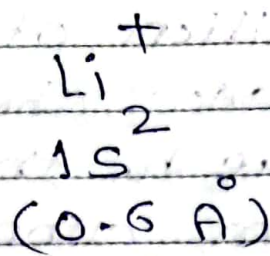 Li⁺
1s²
(0.6 Å)